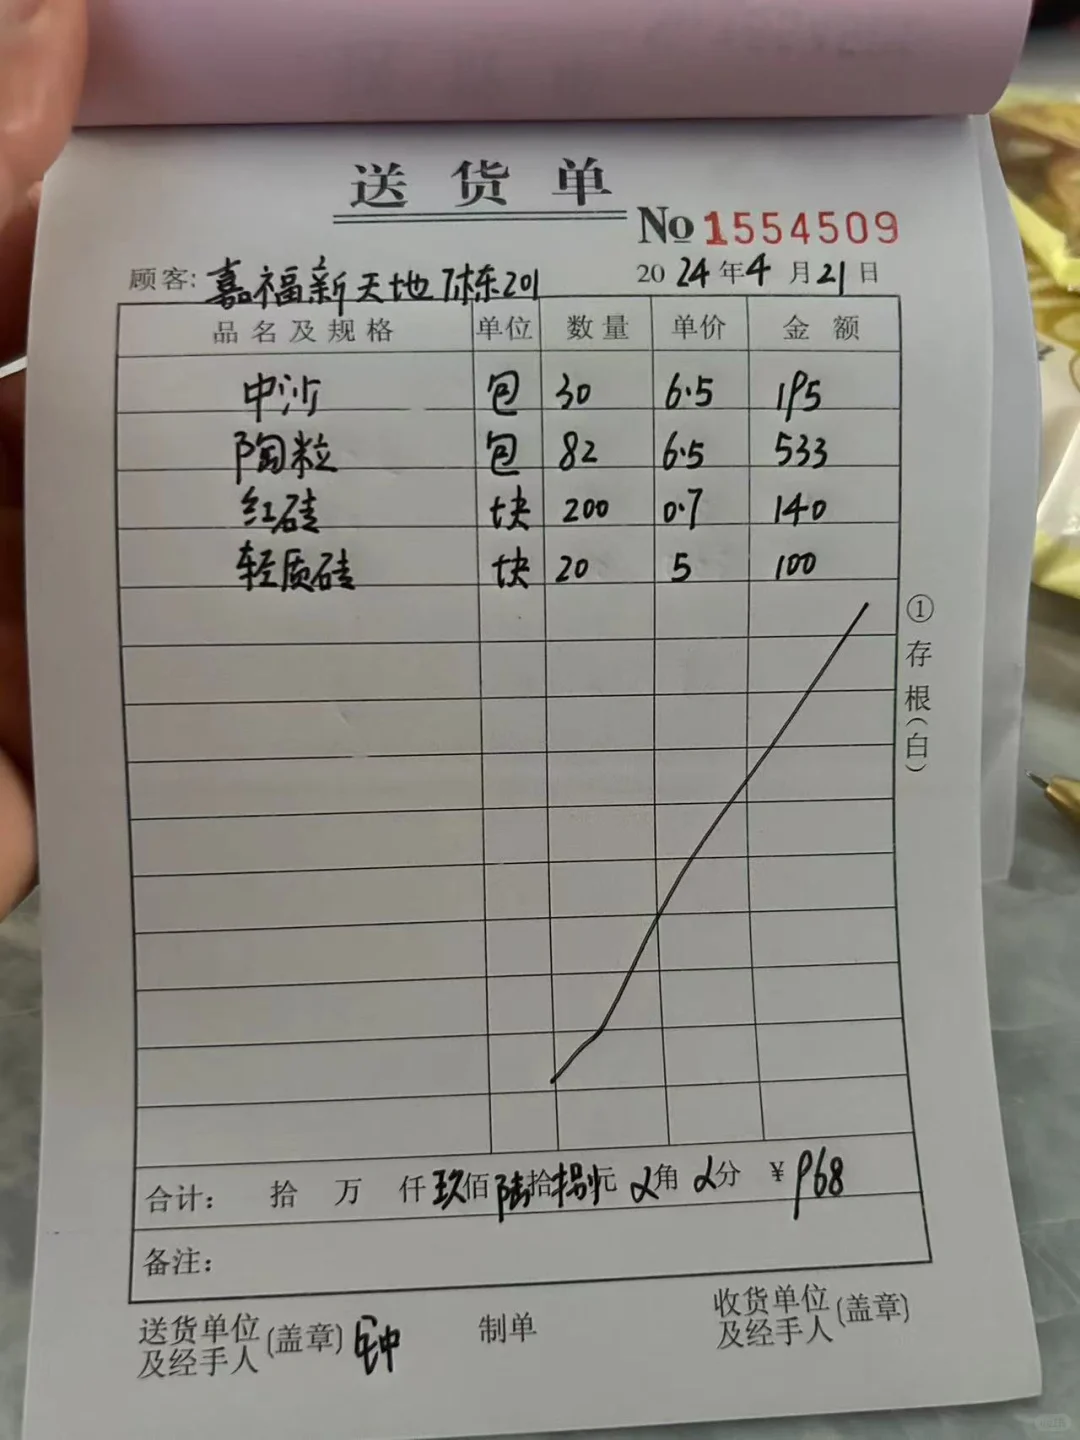 送货单
No 1554509
顾客: 嘉福新天地7栋201 2024年4月21日
品名及规格 单位 数量 单价 金额
中沙 包 30 6.5 195
陶粒 包 82 6.5 533
红砖 块 200 0.7 140
轻质砖 块 20 5 100
①存根(白)
合计: 拾 万 仟 玖佰 陆拾 捌元 0角 0分 ¥ 968
备注:
送货单位及经手人(盖章) 钟 制单 收货单位及经手人(盖章)